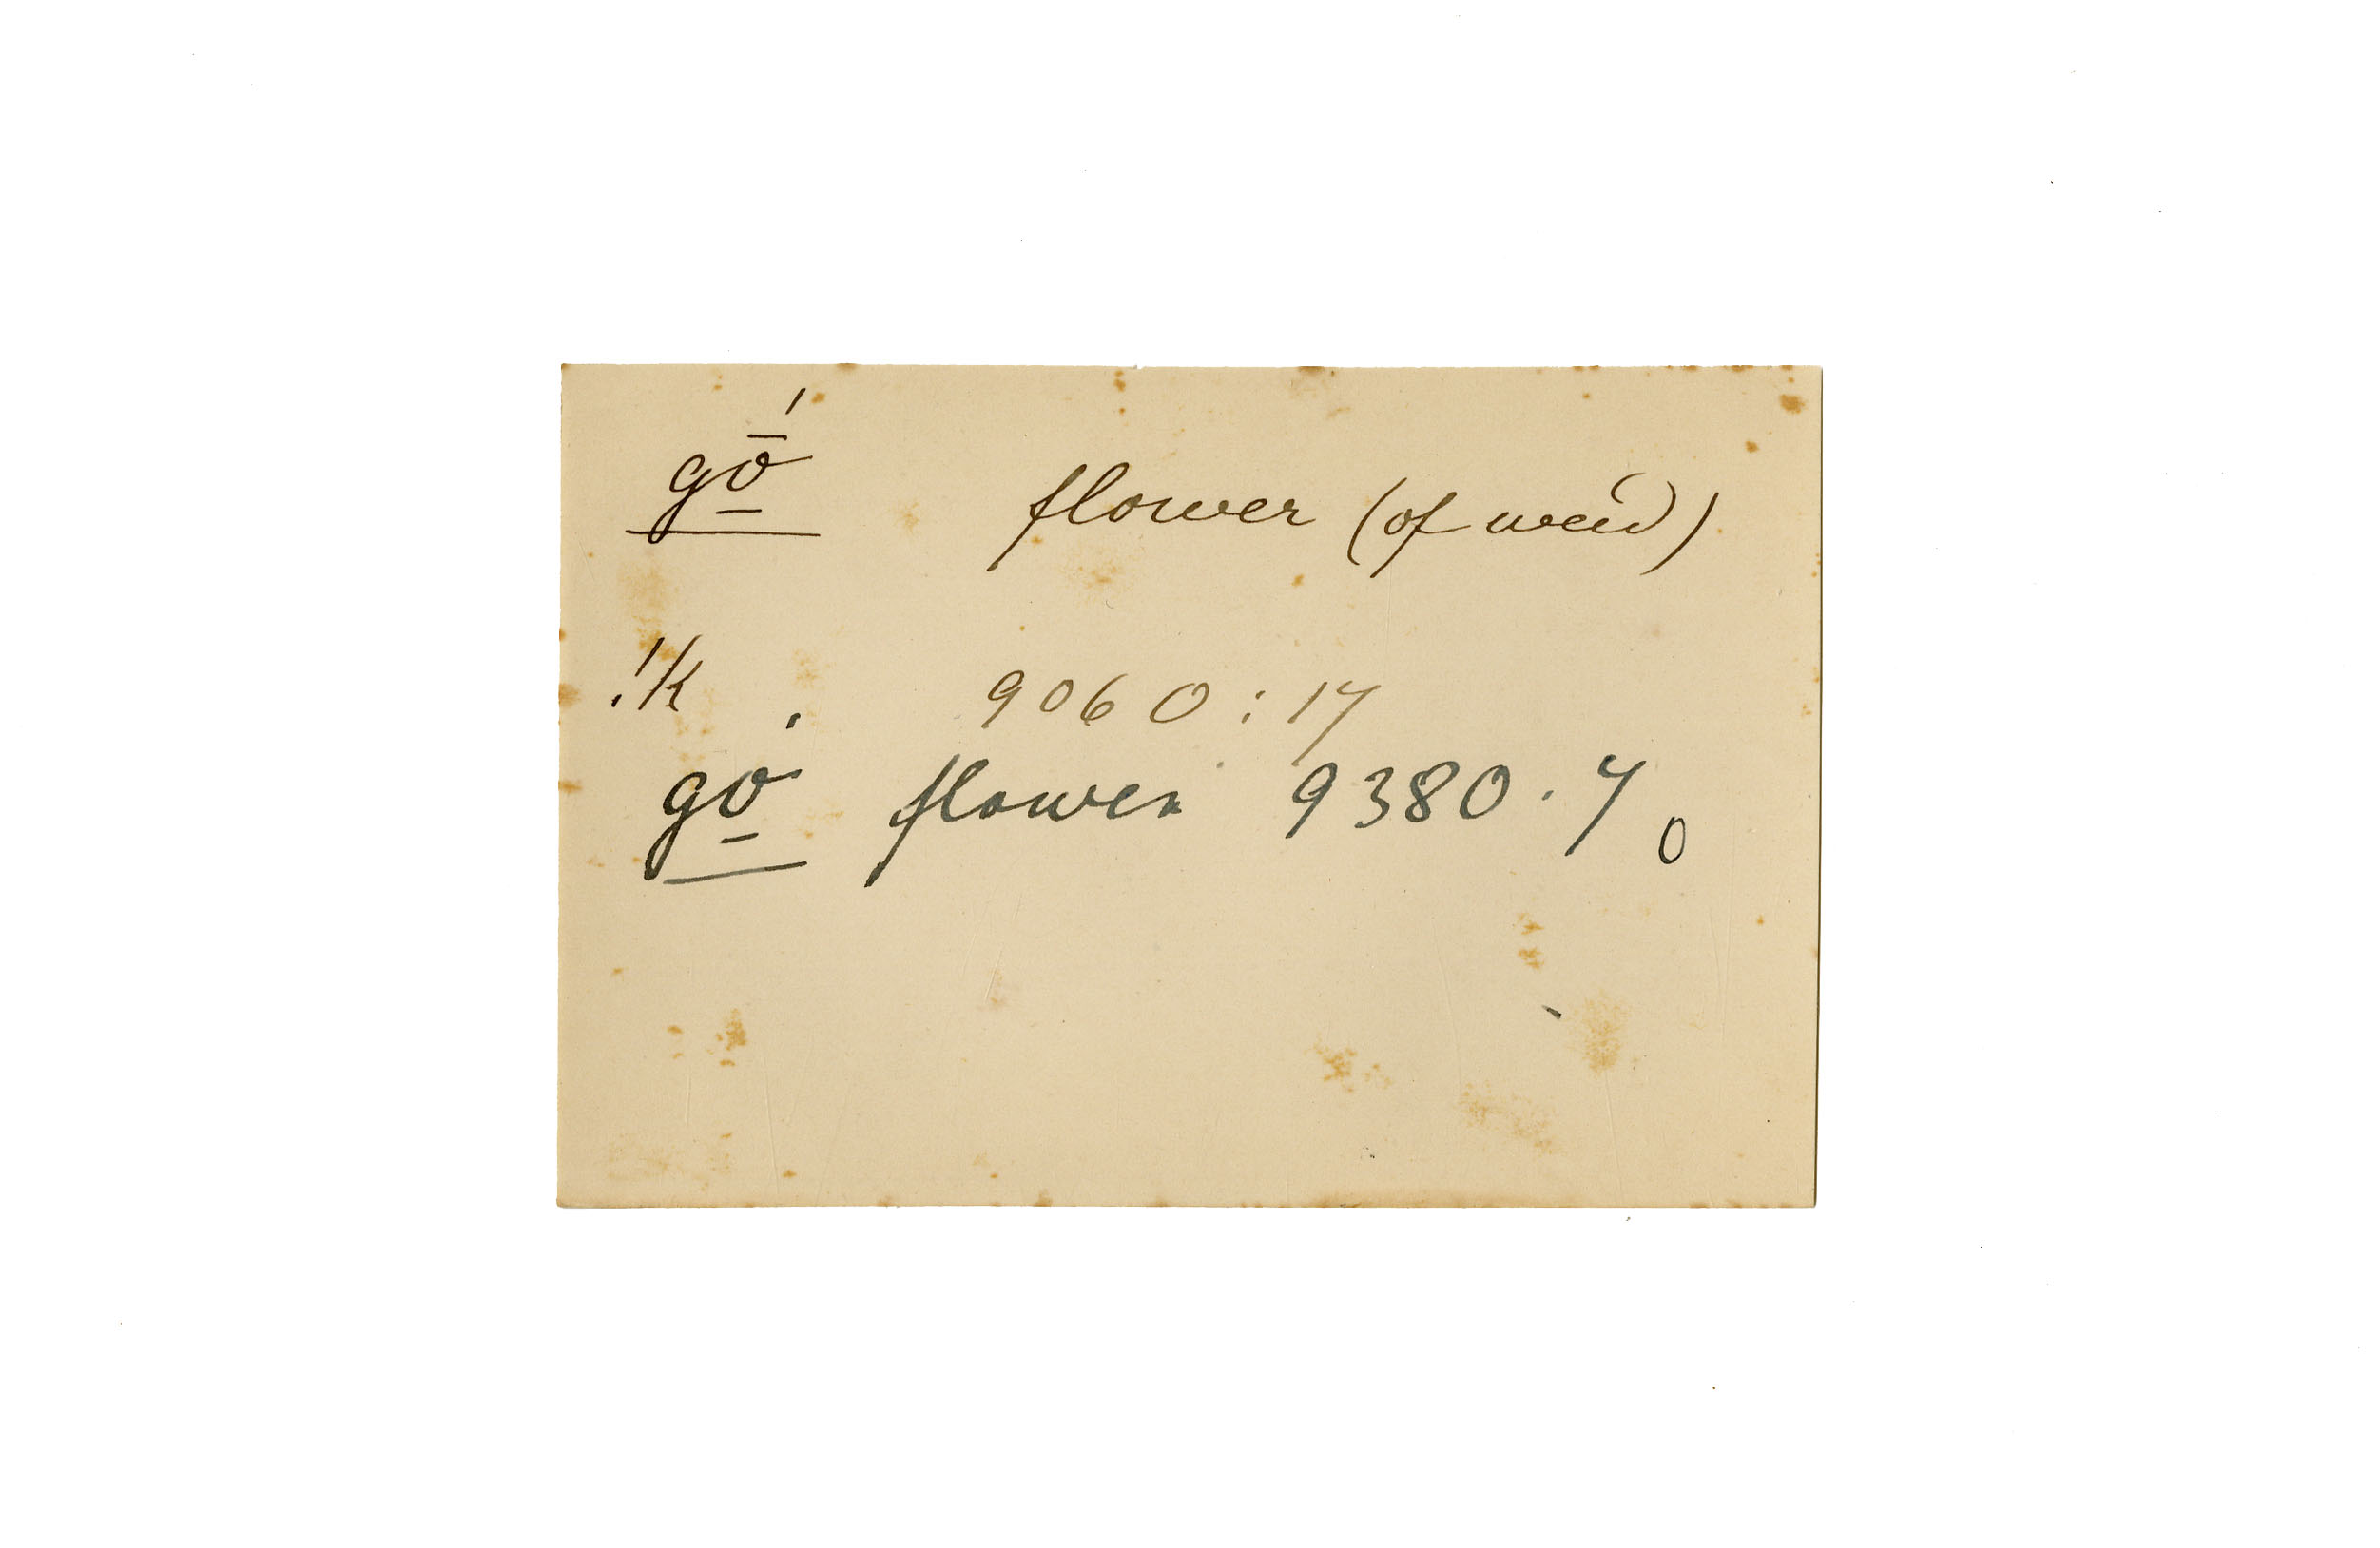 gṓ̱ flower (of weed)
!k 9060:17
gó̱ flower 9380.7 0